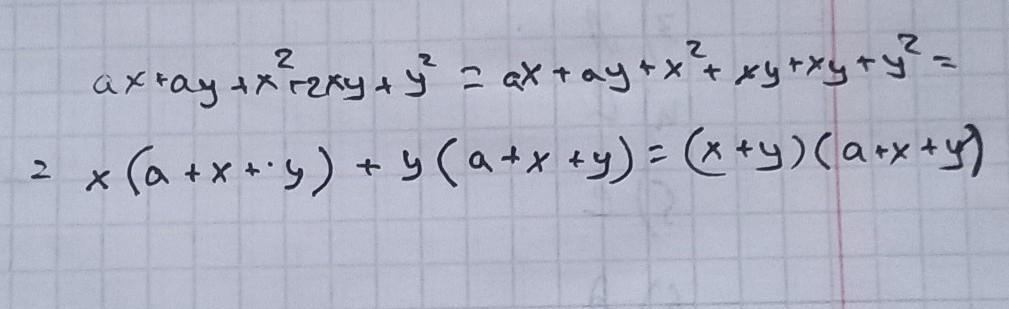 ax+ay+x²+2xy+y² = ax+ay+x²+xy+xy+y² =
= x(a+x+y)+y(a+x+y)=(x+y)(a+x+y)